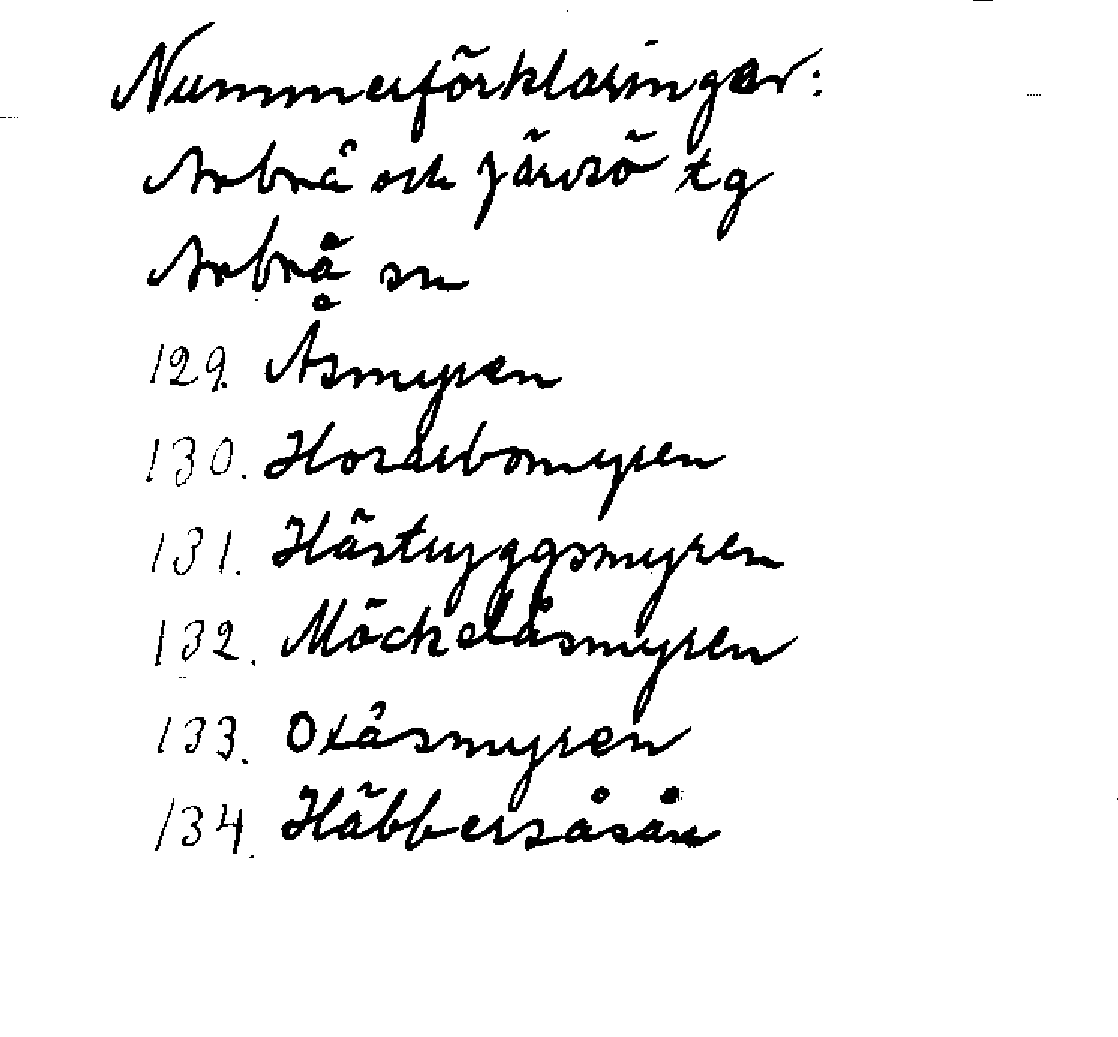 Nummerförklaringar:
Arbrå och Järvsö tg
Arbrå sn
129. Åsmyren
130. Horsebomyren
131. Hästryggsmyren
132. Möckelåsmyren
133. Oxåsmyren
134. Häbbersåsån